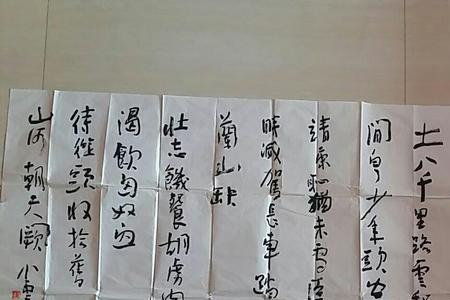 土八千里路雲
閒白少年頭
靖康恥猶未雪臣
時滅駕長車踏
蘭山缺
壯志饑餐胡虜肉
渴飲匈奴血
待從頭收拾舊
山河朝天闕小